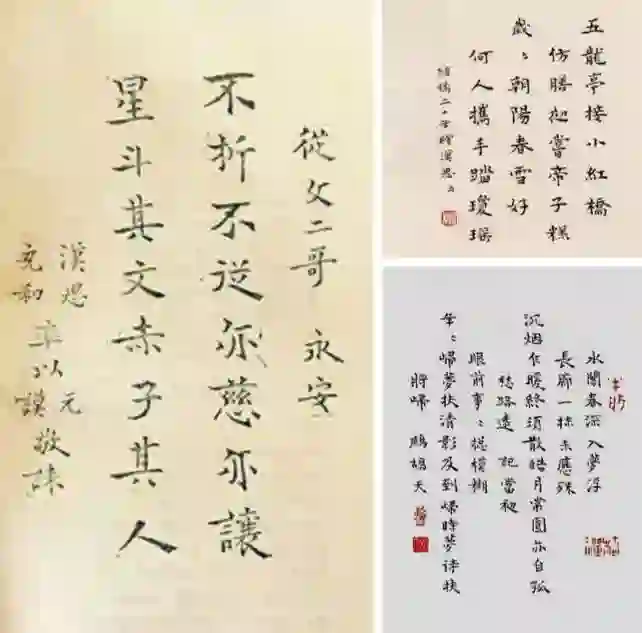 從文二哥 永安
不折不從亦慈亦讓
星斗其文赤子其人
漢思
充和
率以元
謨
敬誄
五龍亭接小紅橋
仿膳初嘗帝子糕
歲〻朝陽春雪好
何人攜手踏瓊瑤
結縭二十 漢思
水閣春深入夢浮
長廊一抹未應殊
沉烟乍暖終須散皓月常圓亦自孤
愁路遠 記當初
眼前事〻總模糊
年〻歸夢扶清影及到歸時夢待扶
將歸 鷓鴣天